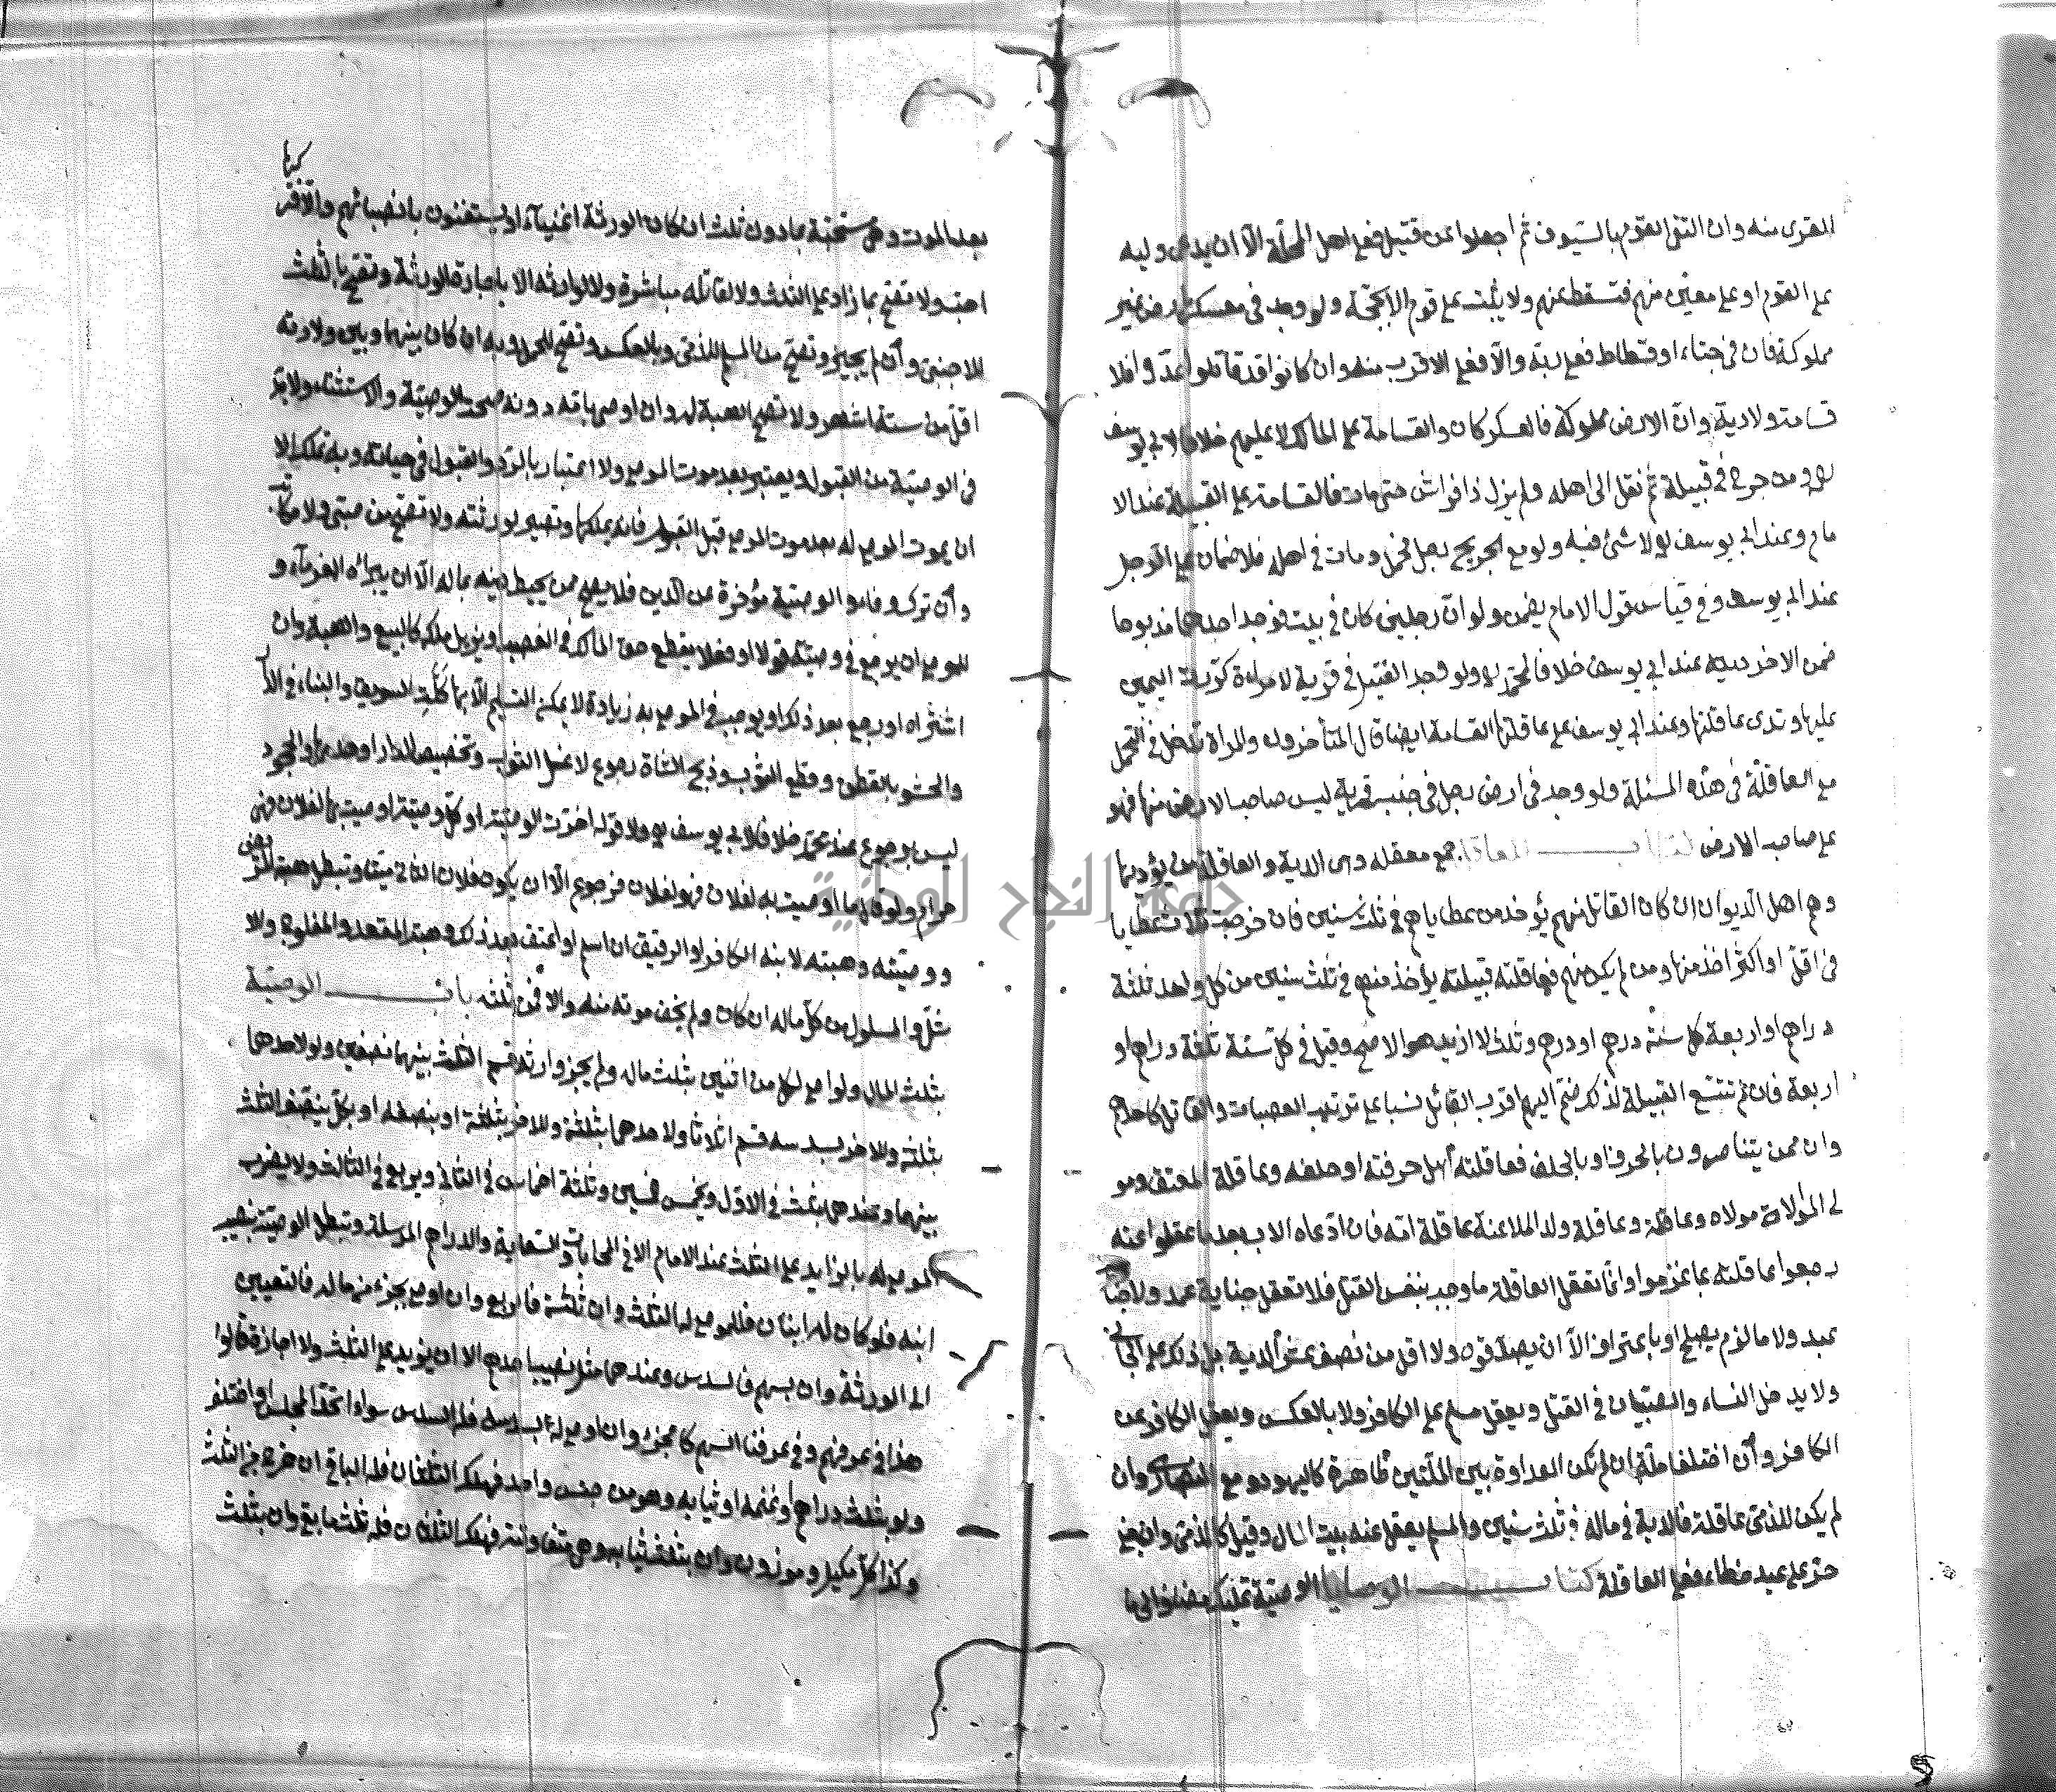 القرى منه وان التقى القوم بالسيوف ثم اجلوا عن قتيل فعلى اهل المحلة الا ان يدعى وليه
على القوم او على معين منهم فتسقط عنهم ولا يثبت على قوم الا بحجة ولو وجد فى معسكر بارض غير
مملوكة فان فى خباء او فسطاط فعلى ربه والا فعلى الاقرب منه وان كانوا قد قاتلوا عدوا فلا
قسامة ولا دية وان الارض مملوكة فالعسكر كان والقسامة على المالك لا عليهم خلافا لابى يوسف
ومن جرح فى قبيلة ثم نقل الى اهله ولم يزل ذا فراش حتى مات فالقسامة على القبيلة عند الا
مام وعند ابى يوسف لا شئ فيه ولو مع الجريح رجل فحمل ومات فى اهله فلا ضمان على الرجل
عند ابى يوسف وفى قياس قول الامام يضمن ولو ان رجلين كان فى بيت فوجد احدهما مذبوحا
ضمن الاخر ديته عند ابى يوسف خلافا لمحمد ولو وجد القتيل فى قرية لامراة كررت اليمين
عليها وتدى عاقلتها وعند ابى يوسف على عاقلتها القسامة ايضا قال المتأخرون والمراة تدخل فى التحمل
مع العاقلة فى هذه المسئلة ولو وجد فى ارض رجل فى جنب قرية ليس صاحب الارض منها فهو
على صاحب الارض كتاب المعاقل جمع معقله وهى الدية والعاقلة من يؤديها
وهم اهل الديوان ان كان القاتل منهم يؤخذ من عطاياهم فى ثلث سنين فان خرجت ثلاث عطايا
فى اقل او اكثر اخذ منها ومن لم يكن منهم فعاقلته قبيلته يؤخذ منهم فى ثلث سنين من كل واحد ثلثة
دراهم او اربعة كل سنة درهم او درهم وثلث لا ازيد هو الاصح وقيل فى كل سنة ثلثة دراهم او
اربعة فان لم تتسع القبيلة لذلك ضم اليهم اقرب القبائل نسبا على ترتيب العصبات والقاتل كاحدهم
وان ممن يتناصرون بالحرف او بالحلف فعاقلته اهل حرفته او حلفه وعاقلة المعتق ومو
لى الموالاة مولاه وعاقلته وعاقلة ولد الملاعنة عاقلة امه فان ادعاه الاب بعد ما عقلوا عنه
رجعوا على عاقلته بما غرموا وانما تعقل العاقلة ما وجب بنفس القتل فلا تعقل جناية عمد ولا جناية
عبد ولا ما لزم بصلح او باعتراف الا ان يصدقوه ولا اقل من نصف عشر الدية بل ذلك على الجانى
ولا يدخل النساء والصبيان فى العقل ويعقل مسلم على الكافر ولا بالعكس ويعقل الكافر عن
الكافر وان اختلفا ملة ان لم تكن العداوة بين الملتين ظاهرة كاليهود مع النصارى وان
لم يكن للذمى عاقلة فالدية فى ماله فى ثلث سنين والمسلم يعقل عنه بيت المال وقيل كالذمى وان جنى
حر على عبد خطاء فعلى العاقلة كتاب الوصايا الوصية تمليك مضاف الى ما
بعد الموت وهى مستحبة بما دون ثلث ان كان الورثة اغنياء او يستغنون بانصبائهم والا فتركها
احب ولا تصح بما زاد على الثلث ولا لقاتله مباشرة ولا لوارثه الا باجازة الورثة وتصح بالثلث
للاجنبى وان لم يجيزوا وتصح من المسلم للذمى وبالعكس وتصح للحمل وبه ان كان بينها وبين ولادته
اقل من ستة اشهر ولا تصح الهبة له وان اوصى بامة دونه صحت الوصية والاستثناء ولا بد
فى الوصية من القبول ويعتبر بعد موت الموصى ولا اعتبار بالرد والقبول فى حياته وبه تملك الا
ان يموت الموصى له بعد موت الموصى قبل القبول فانه يملكها وتصير لورثته ولا تصح من صبى ولا مكاتب
وان ترك وفاء والوصية مؤخرة عن الدين فلا تصح ممن يحيط دينه بماله الا ان يبرأه الغرماء و
للموصى ان يرجع فى وصيته قولا او فعلا يقطع حق المالك فى الغصب او يزيل ملكه كالبيع والهبة وان
اشتراه او رجع بعد ذلك او يوجب فى الموصى به زيادة لا يمكن التسليم الا بها كلت السويق والبناء فى الدار
والحشو بالقطن وقطع الثوب وذبح الشاة رجوع لا غسل الثوب وتجصيص الدار او هدمها والجحود
ليس برجوع عند محمد خلافا لابى يوسف ولا قوله اخرت الوصية او كل وصية اوصيت بها لفلان فهى
حرام ولو قال ما اوصيت به لفلان فهو لفلان فرجوع الا ان يكون فلان الثانى ميتا وتبطل هبة المريض
ووصيته وهبته لابنه الكافر او الرقيق ان اسلم او اعتق بعد ذلك وهبة المقعد والمفلوج والا
شل والمسلول من كل ماله ان كان ولم يخف موته منه والا فمن ثلثه باب الوصية
بثلث المال ولو اوصى لكل من اثنين بثلث ماله ولم يجيزوا رثه قسم الثلث بينهما نصفين ولو لاحدهما
بثلثه وللاخر بسدسه قسم اثلاثا ولاحدهما بثلثه وللاخر بثلثيه او بنصفه او بكله ينصف الثلث
بينهما وعندهما يثلث فى الاول ويخمس خمسين وثلثة اخماس فى الثانى ويربع فى الثالث ولا يضرب
الموصى له بالزايد على الثلث عند الامام الا فى المحابات والسعاية والدراهم المرسلة وتبطل الوصية بنصيب
ابنه فلو كان له ابنان فللموصى له الثلث وان ثلثة فالربع وان اوصى بجزء من ماله فالتعيين
الى الورثة وان بسهم فالسدس وعندهما مثل نصيب احدهم الا ان يزيد على الثلث ولا اجازة قالوا
هذا فى عرفهم وفى عرفنا السهم كالجزء وان اوصى له بالسدس فله السدس سواء اتحد المجلس او اختلف
ولو بثلث دراهمه او غنمه او ثيابه وهو من جنس واحد فهلك الثلثان فله الباقى ان خرج من الثلث
وكذا كل مكيل وموزون وان بثلث ثيابه وهى متفاوتة فهلك الثلثان فله ثلث ما بقى وان بثلث
جامعة النجاح الوطنية